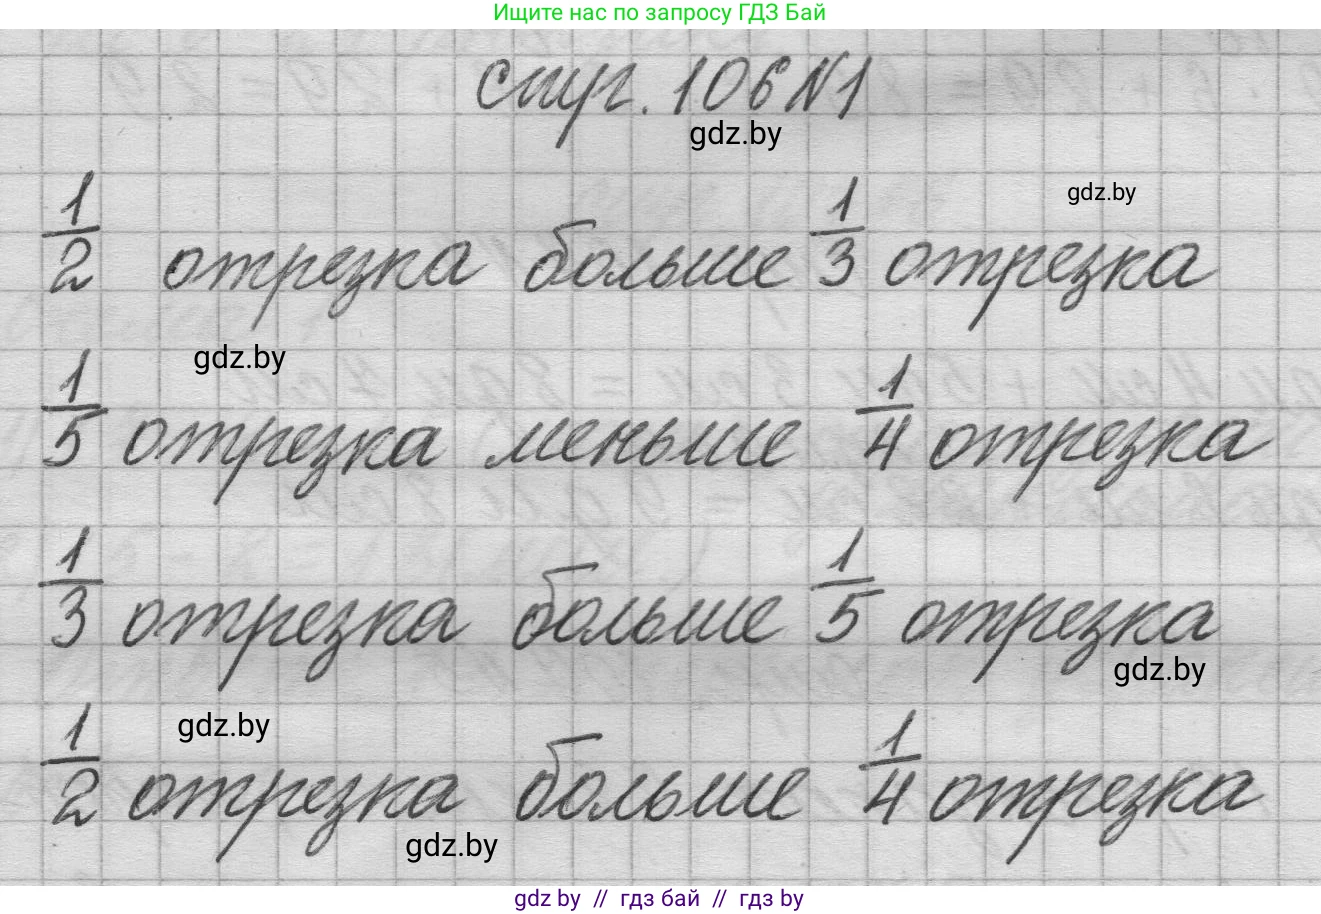 Ищите нас по запросу ГДЗ Бай
Стр. 106 №1
gdz.by
gdz.by
1/2 отрезка больше 1/3 отрезка
gdz.by
1/5 отрезка меньше 1/4 отрезка
1/3 отрезка больше 1/5 отрезка
gdz.by
gdz.by
1/2 отрезка больше 1/4 отрезка
gdz.by
gdz by // гдз бай // гдз by